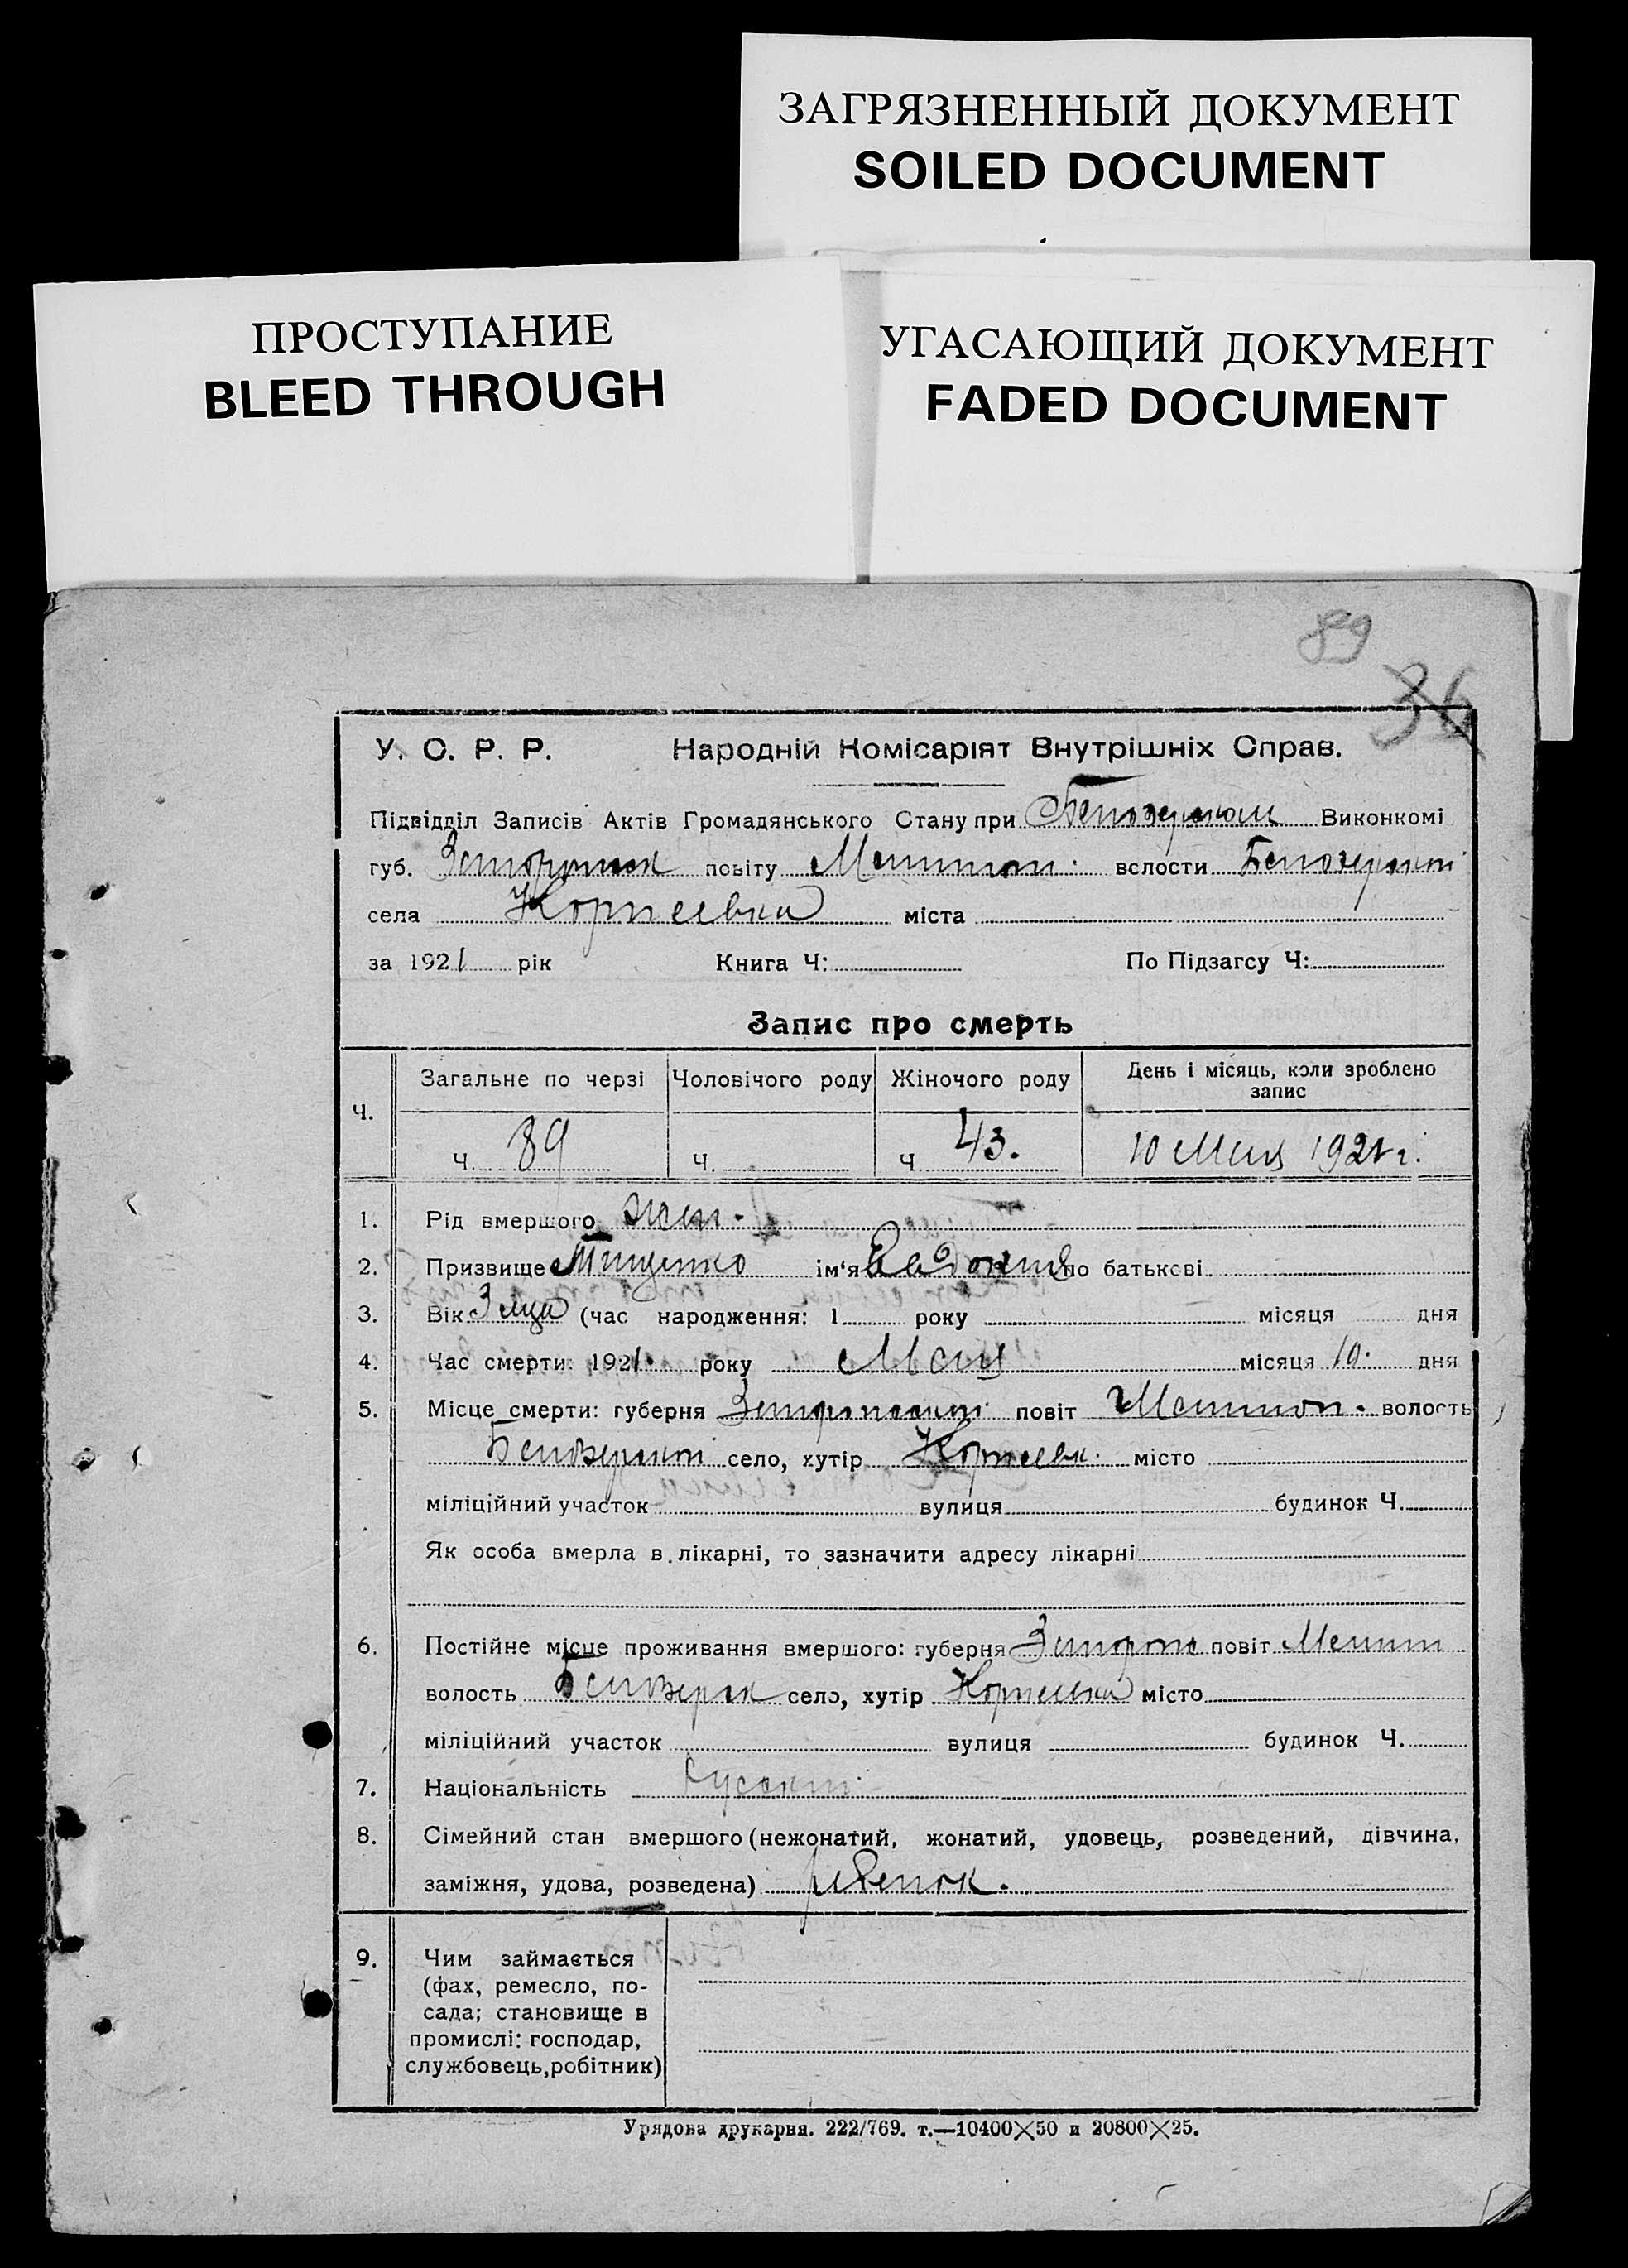 ЗАГРЯЗНЕННЫЙ ДОКУМЕНТ
SOILED DOCUMENT
ПРОСТУПАНИЕ
BLEED THROUGH
УГАСАЮЩИЙ ДОКУМЕНТ
FADED DOCUMENT
89
36
У. С. Р. Р. Народній Комісаріят Внутрішніх Справ.
Підвідділ Записів Актів Громадянського Стану при Виконкомі
губ. повіту вслости
села Корнеевка міста
за 1921 рік Книга Ч: По Підзагсу Ч:
Запис про смерть
Ч. Загальне по черзі Чоловічого роду Жіночого роду День і місяць, коли зроблено запис
Ч. 89 Ч. Ч 43. 10 Мая 1921 г.
1. Рід вмершого жен.
2. Призвище Тищенко ім'я Евдокия по батькові
3. Вік 3 мца (час народження: 1 року місяця дня
4. Час смерти: 1921. року Мая місяця 10. дня
5. Місце смерти: губерня повіт волость
село, хутір Корнеевк. місто
міліційний участок вулиця будинок Ч.
Як особа вмерла в лікарні, то зазначити адресу лікарні
6. Постійне місце проживання вмершого: губерня повіт Мелит
волость село, хутір Корнеевка місто
міліційний участок вулиця будинок Ч.
7. Національність
8. Сімейний стан вмершого (нежонатий, жонатий, удовець, розведений, дівчина,
заміжня, удова, розведена) ребенок.
9. Чим займається
(фах, ремесло, по-
сада; становище в
промислі: господар,
службовець, робітник)
Урядова друкарня. 222/769. т.—10400×50 и 20800×25.